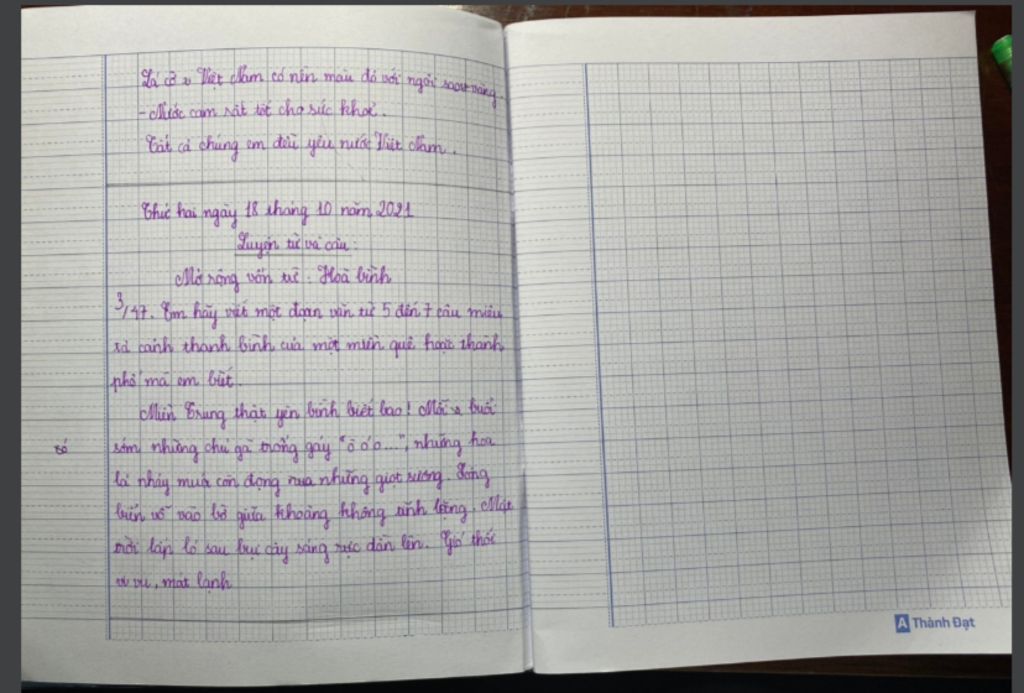 Lá cờ Việt Nam có nền màu đỏ với ngôi sao vàng.
- Nước cam rất tốt cho sức khoẻ.
Tất cả chúng em đều yêu nước Việt Nam.
Thứ hai ngày 18 tháng 10 năm 2021
Luyện từ và câu:
Mở rộng vốn từ: Hoà bình
3/47. Em hãy viết một đoạn văn từ 5 đến 7 câu miêu
tả cảnh thanh bình của một miền quê hoặc thành
phố mà em biết.
Miền Trung thật yên bình biết bao! Mỗi buổi
sớm những chú gà trống gáy "ò ó o...", những hoa
lá nhảy múa còn đọng những giọt sương. Sóng
biển vỗ vào bờ giữa khoảng không tĩnh lặng. Mặt
trời lấp ló sau cây sáng rực dần lên. Gió thổi
vi vu, mát lạnh
A Thành Đạt